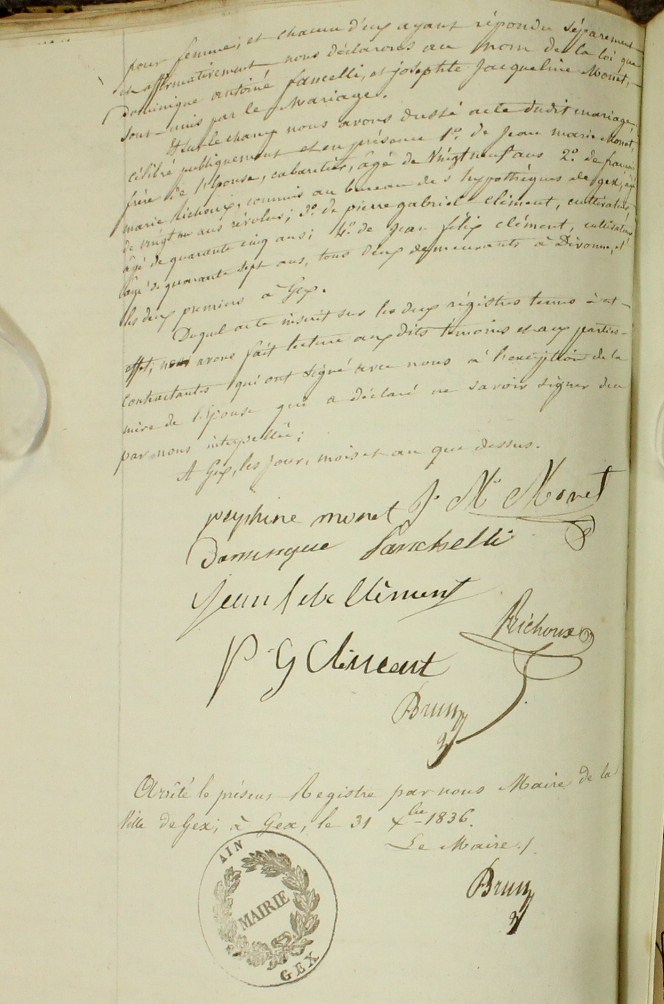 pour femme; et chacun d'eux ayant répondu séparément
et affirmativement nous déclarons au nom de la loi que
Dominique antoine fancelli, et josephte Jacqueline Monet,
sont unis par le Mariage.
Et sur le champ nous avons dressé acte dudit mariage,
célébré publiquement et en présence 1.º de Jean marie Monet,
frère de l'Epouse, cabaretier, âgé de Vingt neuf ans 2.º de françois
marie Richoux, commis au bureau des hypothèques de gex, âgé
de vingt un ans révolus; 3.º de pierre gabriel Clément, cultivateur
âgé de quarante cinq ans; 4.º de Jean félix clément, cultivateur
âgé de quarante sept ans, tous deux demeurants à Divonne, et
les deux premiers à Gex.
Duquel acte inscrit sur les deux régistres tenus à cet
effet, nous avons fait lecture aux dits témoins et aux parties
contractantes qui ont signé avec nous à l'exception de la
mère de l'Epouse qui a déclaré ne savoir signer de
par nous interpellée;
A Gex, les jour, mois et an que dessus.
josephine monet J. M.e Monet
Dominique Fanchelli
Jean felix Clément
Richoux
P. G Clément
Brun
Arrêté le présent Registre par nous Maire de la
Ville de Gex; à Gex, le 31 Xbre 1836.
Le Maire./
Brun
AIN
MAIRIE
GEX